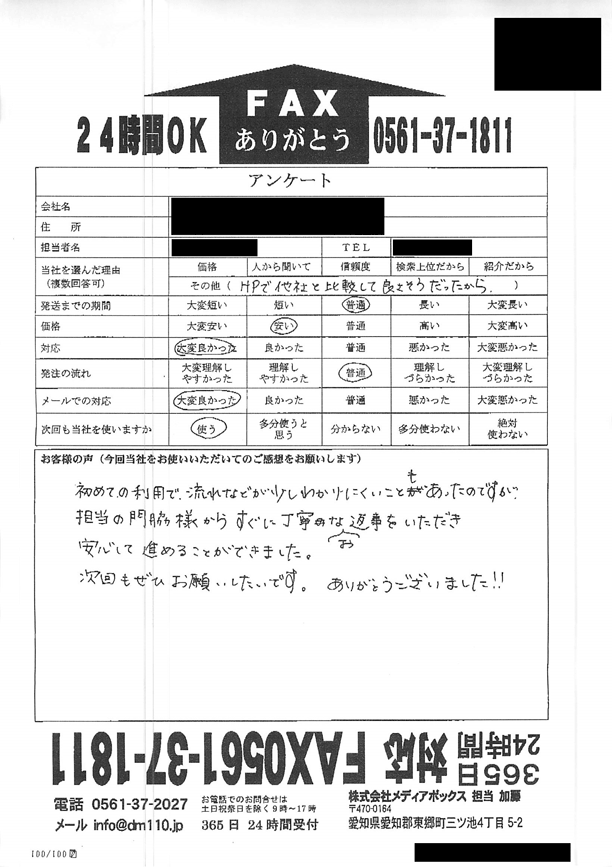 FAX
ありがとう
24時間OK
0561-37-1811
アンケート
会社名
住 所
担当者名 TEL
当社を選んだ理由（複数回答可） 価格 人から聞いて 信頼度 検索上位だから 紹介だから
その他（ HPで他社と比較して良さそうだったから。 ）
発送までの期間 大変短い 短い 普通 長い 大変長い
価格 大変安い 安い 普通 高い 大変高い
対応 大変良かった 良かった 普通 悪かった 大変悪かった
発注の流れ 大変理解しやすかった 理解しやすかった 普通 理解しづらかった 大変理解しづらかった
メールでの対応 大変良かった 良かった 普通 悪かった 大変悪かった
次回も当社を使いますか 使う 多分使うと思う 分からない 多分使わない 絶対使わない
お客様の声（今回当社をお使いいただいてのご感想をお願いします）
初めての利用で、流れなどが少しわかりにくいこともあったのですが、
担当の門脇様からすぐに丁寧なお返事をいただき
安心して進めることができました。
次回もぜひお願いしたいです。 ありがとうございました!!
365日 24時間 対応 FAX0561-37-1811
電話 0561-37-2027
お電話でのお問合せは
土日祝祭日を除く9時～17時
メール info@dm110.jp
365日 24時間受付
株式会社メディアボックス 担当 加藤
〒470-0164
愛知県愛知郡東郷町三ツ池4丁目5-2
100/100